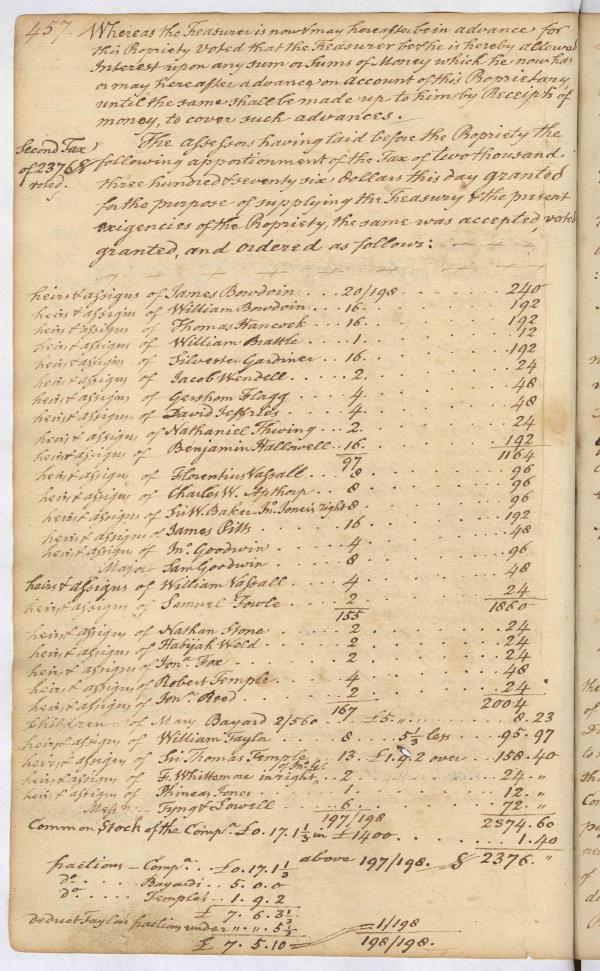 457. Whereas the Treasurer is now & may hereafter be in advance for
this Propriety Voted that the Treasurer be & he is hereby allowed
Interest upon any sum or Sums of Money which he now has
or may hereafter advance on account of this Proprietary
until the same shall be made up to him by Receipts of
money, to cover such advances.
Second Tax
of 2376$
voted.
The assessors having laid before the Propriety the
following apportionment of the Tax of two thousand
three hundred & seventy six Dollars this day granted
for the purpose of supplying the Treasury & the present
exigencies of the Propriety, the same was accepted, voted
granted, and ordered as follows:
heirs & assigns of James Bowdoin . . . 20/198 . . . 240
heirs & assigns of William Bowdoin . . . 16 . . . 192
heirs & assigns of Thomas Hancock . . . 16 . . . 192
heirs & assigns of William Brattle . . . 1 . . . 12
heirs & assigns of Silvester Gardiner . . . 16 . . . 192
heirs & assigns of Jacob Wendell . . . 2 . . . 24
heirs & assigns of Gershom Flagg . . . 4 . . . 48
heirs & assigns of David Jeffries . . . 4 . . . 48
heirs & assigns of Nathaniel Thwing . . . 2 . . . 24
heirs & assigns of Benjamin Hallowell . . . 16 . . . 192
97 1164
heirs & assigns of Florentius Vassall . . . 8 . . . 96
heirs & assigns of Charles W. Apthorp . . . 8 . . . 96
heirs & assigns of Sir W. Baker Jno. Jones's right 8 . . . 96
heirs & assigns of James Pitts . . . 16 . . . 192
heirs & assigns of Jno. Goodwin . . . 4 . . . 48
Major Sam Goodwin . . . 8 . . . 96
heirs & assigns of William Vassall . . . 4 . . . 48
heirs & assigns of Samuel Fowle . . . 2 . . . 24
155 1860
heirs & assigns of Nathan Stone . . . 2 . . . 24
heirs & assigns of Habijah Weld . . . 2 . . . 24
heirs & assigns of Jona. Fox . . . 2 . . . 24
heirs & assigns of Robert Temple . . . 4 . . . 48
heirs & assigns of Jona. Reed . . . 2 . . . 24
167 2004
Children of Mary Bayard 2/560 . . . £5 . . . 8.23
heirs & assigns of William Taylor . . . 8 . . . 5⅓ less . . . 95.97
heirs & assigns of Sir Thomas Temple . . . 13 . £1.9.2 over . . . 158.40
heirs & assigns of F. Whittemore in right of . . . 2 . . . 24. "
heirs & assigns of Phineas Jones . . . 1 . . . 12. "
Messrs. Tyng & Lowell . . . 6 . . . 72. "
197/198 2374.60
Common Stock of the Compa. £0.17.1⅓ in £1400 . . . 1.40
above 197/198. $ 2376. "
fractions — Compa. . . £0.17.1⅓
Do. . . . Bayards . . 5.0.0
Do. . . . Temples . . 1.9.2
£ 7.6.3⅓
Deduct Taylors fraction under " . " . 5⅓ = 1/198
£ 7.5.10 = 198/198.